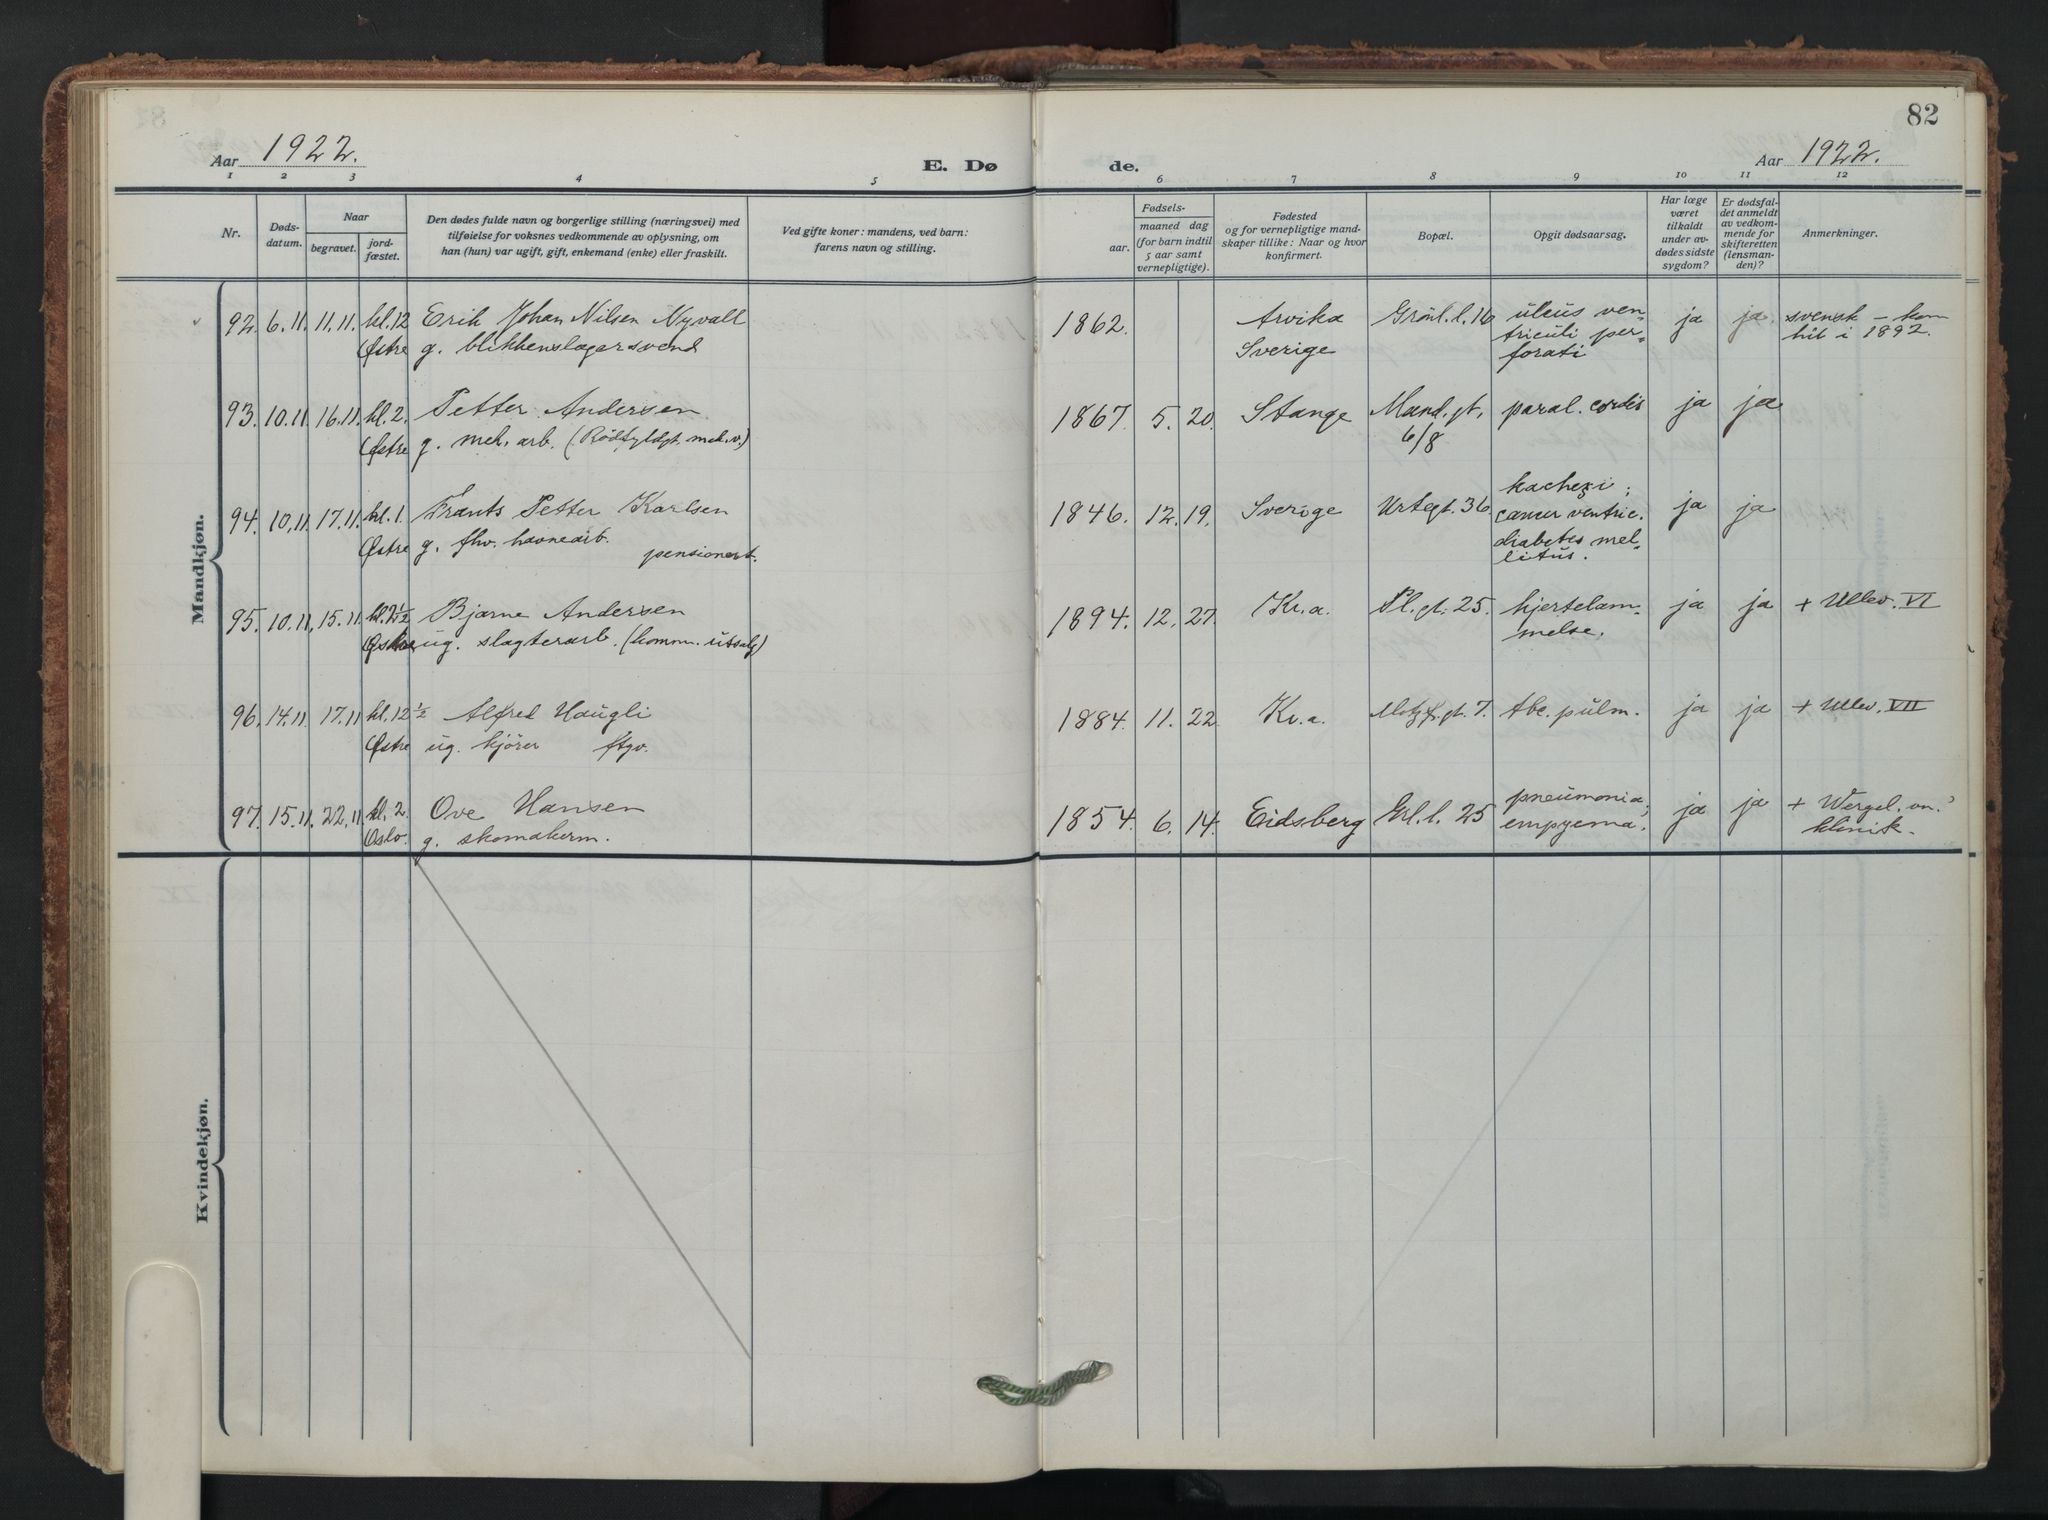 82
Aar 1922.
E. Dø
de.
Aar 1922.
1 2 3 4 5 6 7 8 9 10 11 12
Nr.
Døds-
datum.
Naar
begravet.
jord-
fæstet.
Den dødes fulde navn og borgerlige stilling (næringsvei) med
tilføielse for voksnes vedkommende av oplysning, om
han (hun) var ugift, gift, enkemand (enke) eller fraskilt.
Ved gifte koner: mandens, ved barn:
farens navn og stilling.
Fødsels-
aar.
maaned dag
(for barn indtil
5 aar samt
vernepligtige).
Fødested
og for vernepligtige mand-
skaper tillike: Naar og hvor
konfirmert.
Bopæl.
Opgit dødsaarsag.
Har læge
været
tilkaldt
under av-
dødes sidste
sygdom?
Er dødsfal-
det anmeldt
av vedkom-
mende for
skifteretten
(lensman-
den)?
Anmerkninger.
Mandkjøn.
92. 6.11. 11.11. kl.12 Erik Johan Nilsen Nyvall 1862. Arvika Grönl.l.16 ulcus ven- ja ja. svensk - kom
Østre g. blikkenslagersvend Sverige triculi per- hit i 1892.
forati
93. 10.11. 16.11. kl.2. Petter Andersen 1867. 5. 20. Stange Mand.gt. paral. cordis ja ja
Østre g. mek. arb. (Rödfyldgt. mek.v.) 6/8
kachexi;
94. 10.11. 17.11. kl.1. Frants Petter Karlsen 1846. 12. 19. Sverige Urtegt.36. cancer ventric. ja ja
Østre g. fhv. havnearb. diabetes mel-
pensionert. litus.
95. 10.11. 15.11. kl.2½ Bjarne Andersen 1894. 12. 27. Kr.a. Pl.gt.25. hjertelam- ja ja + Ullev. VI
Østre ug. slagterarb. (komm. utsalg) melse.
96. 14.11. 17.11 kl.12½ Alfred Haugli 1884. 11. 22. Kr.a. Motzf.gt.7. tbc. pulm. ja ja + Ullev. VII
Østre ug. kjører ftgv.
97. 15.11. 22.11 kl.2. Ove Hansen 1854. 6. 14. Eidsberg Grl.l. 25 pneumonia; ja ja + Wergel.vn.'
Oslo. g. skomakerm. empyema. klinik.
Kvindekjøn.